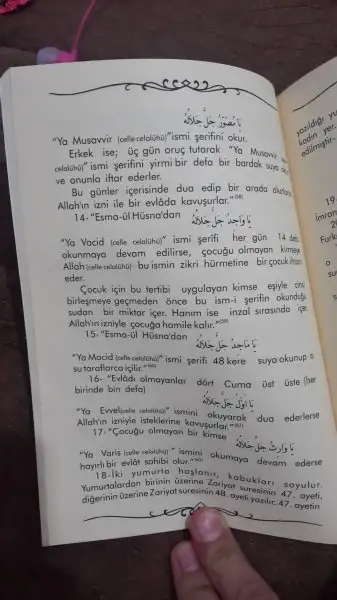 يَا مُصَوِّرُ جَلَّ جَلَالُهُ
"Ya Musavvir (celle celalühü)"ismi şerifini okur.
Erkek ise; üç gün oruç tutarak "Ya Musavvir
celalühü)" ismi şerifini yirmi bir defa bir bardak suya
ve onunla iftar ederler.
Bu günler içerisinde dua edip bir arada
Allah'ın izni ile bir evlâda kavuşurlar."(58)
14- "Esma-ül Hüsna'dan يَا وَاجِدُ جَلَّ جَلَالُهُ
"Ya Vacid (celle celalühü)" ismi şerifi her gün 14 defa
okunmaya devam edilirse, çocuğu olmayan kimseye
Allah (celle celalühü) bu ismin zikri hürmetine bir çocuk ihsan
eder.
Çocuk için bu tertibi uygulayan kimse eşiyle cinsi
birleşmeye geçmeden önce bu ism-i şerifin okunduğu
sudan bir miktar içer. Hanım ise inzal sırasında içer.
Allah'ın izniyle çocuğa hamile kalır."(59)
15- "Esma-ül Hüsna'dan يَا مَاجِدُ جَلَّ جَلَالُهُ
"Ya Macid (celle celalühü)" ismi şerifi 48 kere suya okunup o
su taraflarca içilir."(60)
16- "Evlâdı olmayanlar dört Cuma üst üste (her
birinde bin defa) يَا اَوَّلُ جَلَّ جَلَالُهُ
"Ya Evvel(celle celalühü)" ismini okuyarak dua ederlerse
Allah'ın izniyle isteklerine kavuşurlar."(61)
17- "Çocuğu olmayan bir kimse يَا وَارِثُ جَلَّ جَلَالُهُ
"Ya Varis (celle celalühü)" ismini okumaya devam ederse
hayırlı bir evlât sahibi olur."(62)
18-İki yumurta haşlanır, kabukları soyulur.
Yumurtalardan birinin üzerine Zariyat suresinin 47. ayeti,
diğerinin üzerine Zariyat suresinin 48. ayeti yazılır. 47. ayetin
yazıldığı
kadın yer.
edilmiştir.
19-
İmran